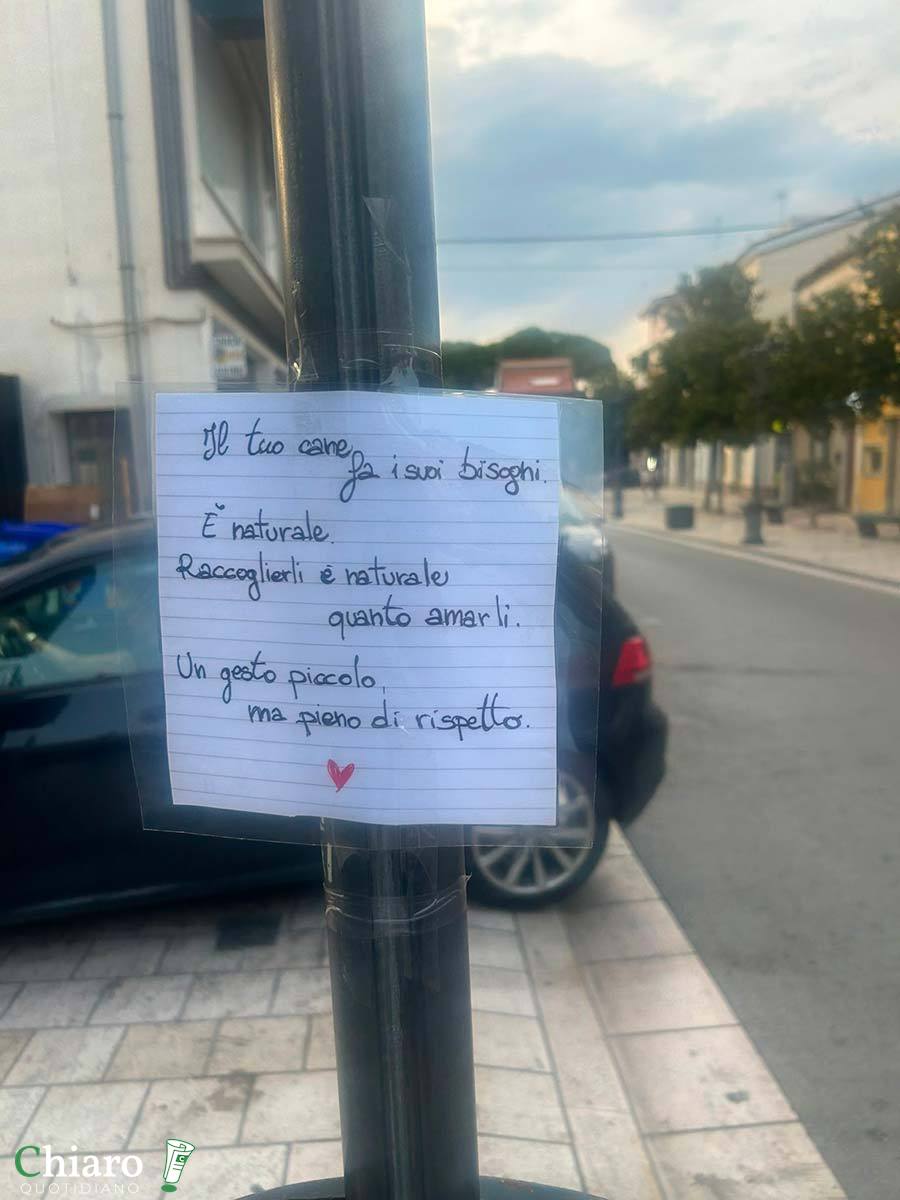 Il tuo cane
fa i suoi bisoghi.
È naturale.
Raccoglierli è naturale
quanto amarli.
Un gesto piccolo,
ma pieno di rispetto.
Chiaro
QUOTIDIANO